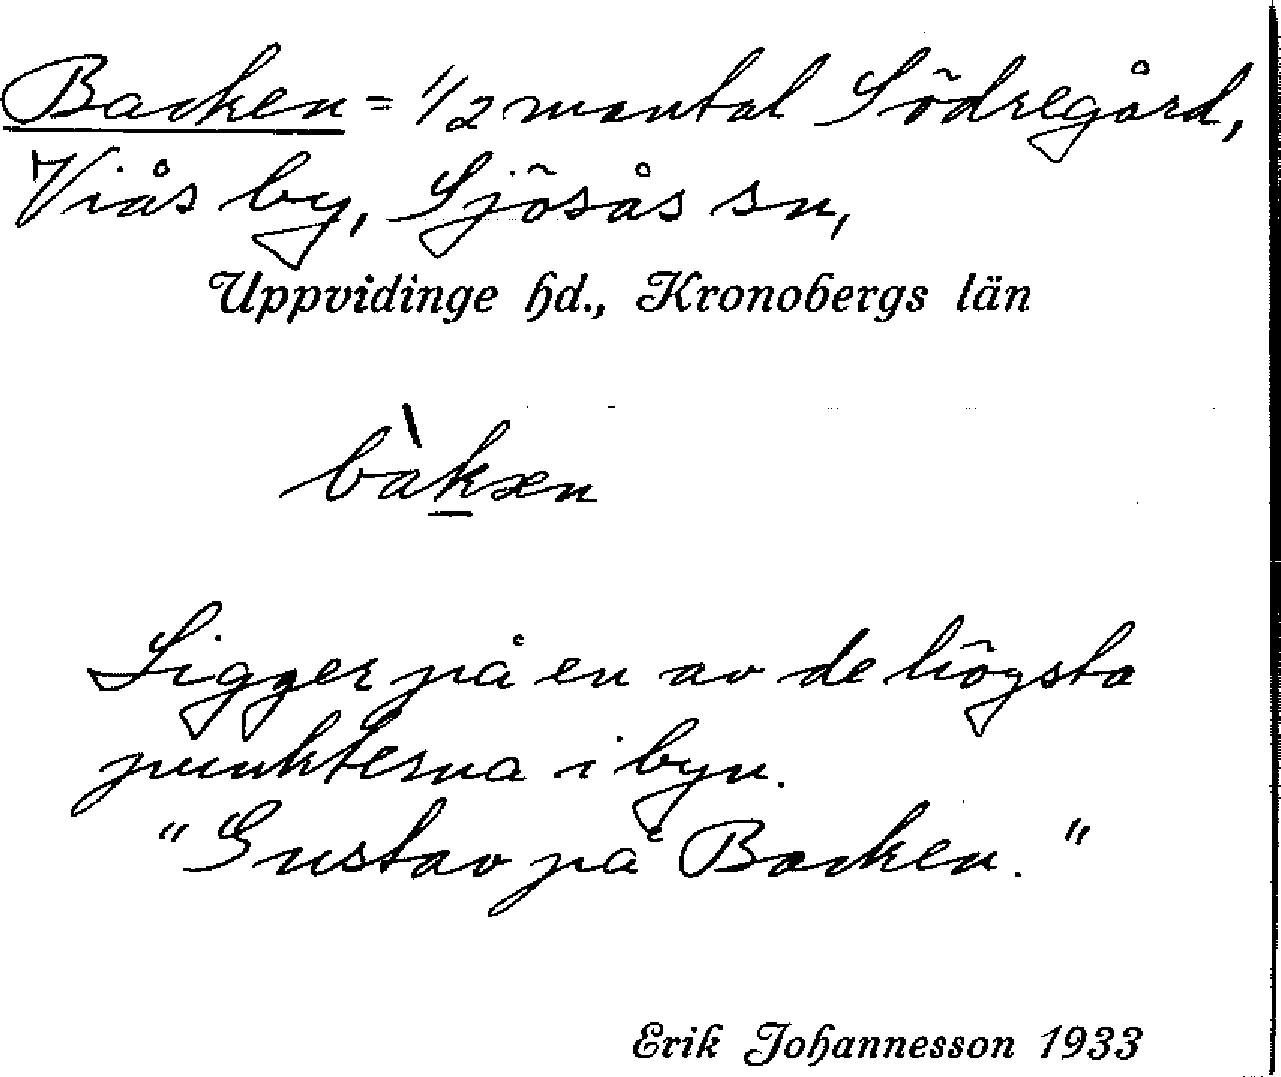 Backen = 1/2 mantal Södregård,
Viås by, Sjösås sn,
Uppvidinge hd., Kronobergs län
bàkæn
Ligger på en av de högsta
punkterna i byn.
"Gustav på Backen."
Erik Johannesson 1933